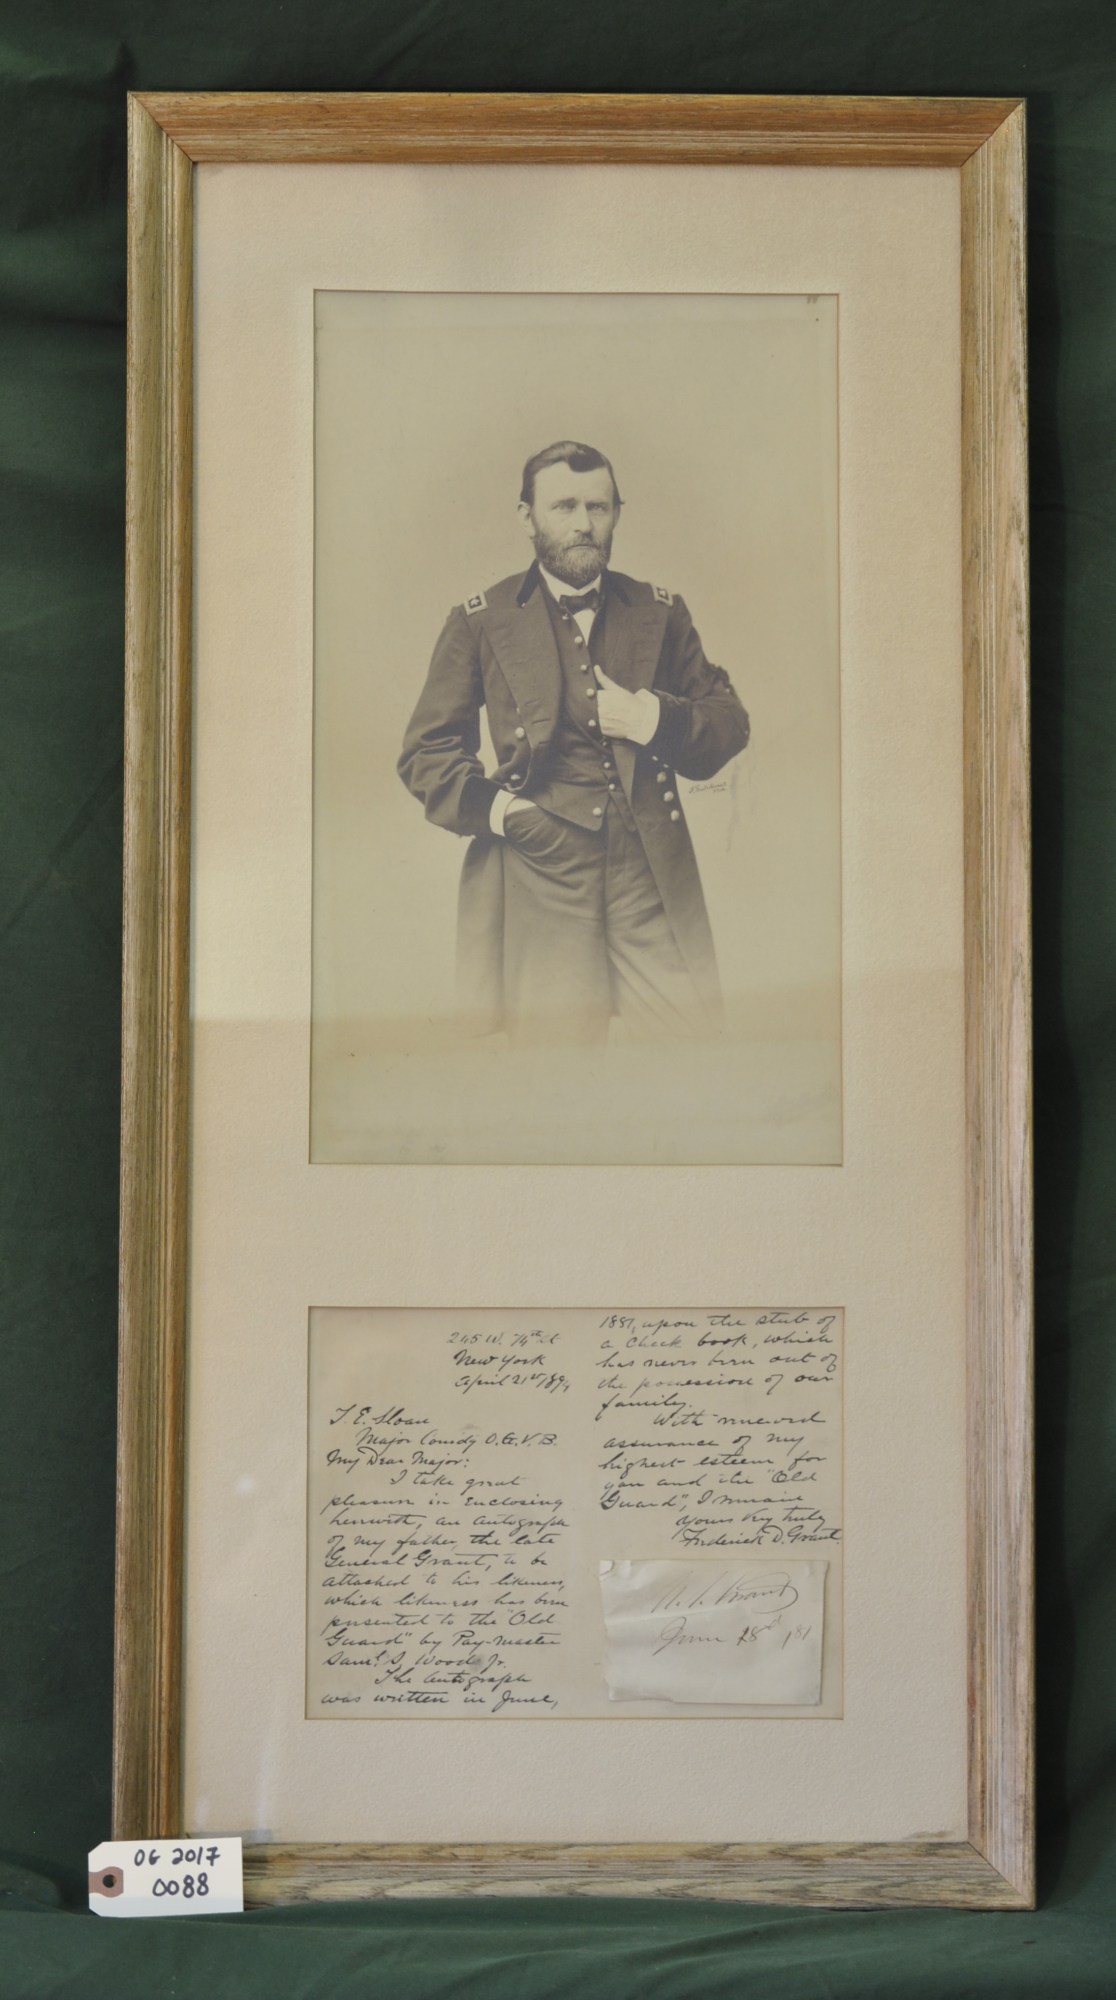 245 W. 74th St
New York
April 21st 1897
T. E. Sloan
Major Comdg O. G. V. B.
My Dear Major:
I take great
pleasure in enclosing
herewith, an autograph
of my father, the late
General Grant, to be
attached to his likeness,
which likeness has been
presented to the "Old
Guard" by Pay-Master
Saml. S. Wood Jr.
The autograph
was written in June,
1881, upon the stub of
a check book, which
has never been out of
the possession of our
family.
With renewed
assurance of my
highest esteem for
you and the "Old
Guard", I remain
Yours very truly
Frederick D. Grant.
U. S. Grant
June 28d /81
OG 2017
0088